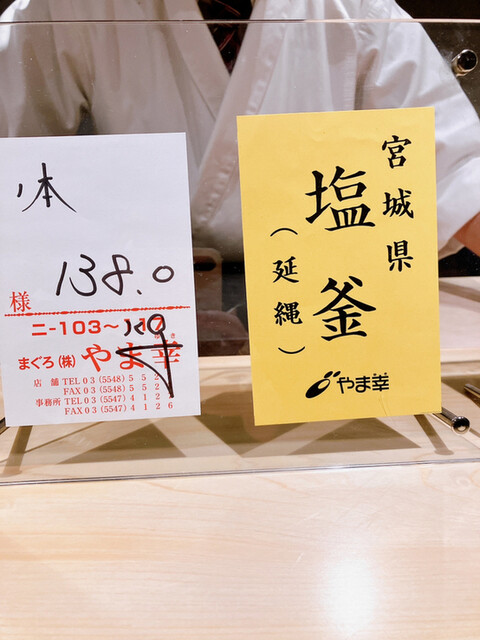 本
138.0
kg
様
ニ-103~117
まぐろ(株)やま幸
店舗 TEL 03 (5548) 5 5 2
FAX 03 (5548) 5 5 2
事務所 TEL 03 (5547) 4 1 2
FAX 03 (5547) 4 1 2 6
宮城県
塩釜
(延縄)
やま幸